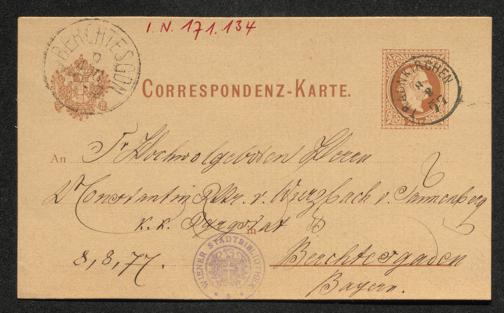 I. N. 171.134
BERCHTESGDN
CORRESPONDENZ-KARTE.
An Sr Hochwolgeboren Herrn
Dr Constantin Ritter v. Wurzbach v. Tannenberg
k. k.
in
8,8,77. Berchtesgaden
Bayern.
WIENER STADTBIBLIOTHEK